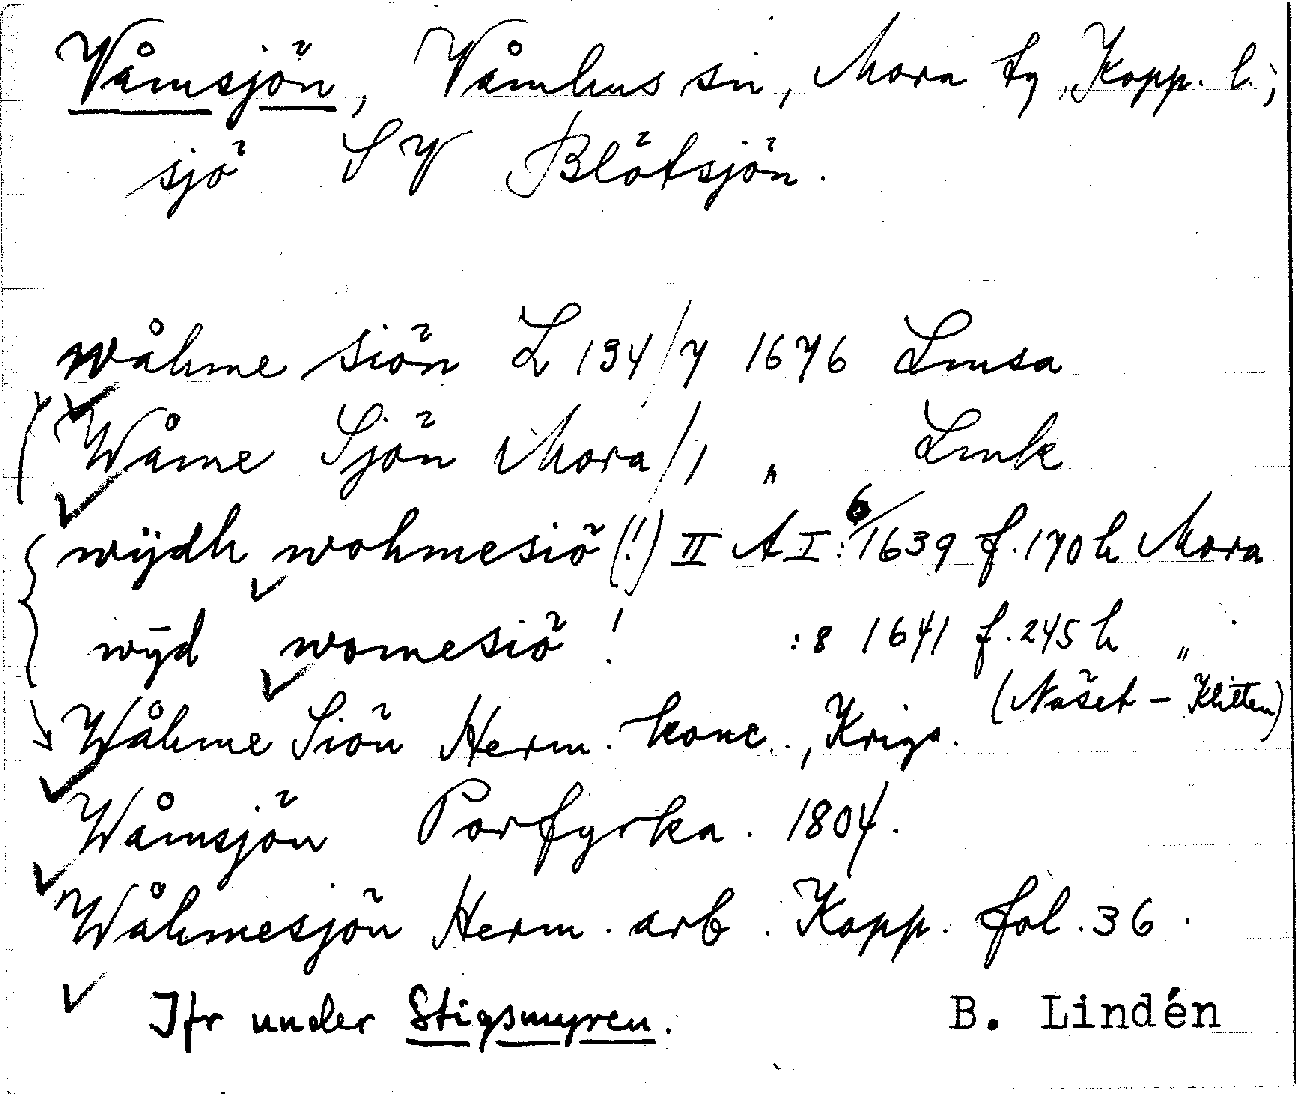 Våmsjön, Våmhus sn, Mora tg, Kopp. l.;
sjö SV Blötsjön.
wåhme siön L 134/7 1676 Lmsa
Wåme Sjön Mora/1 " Lmk
wÿdh wohmesiö (!) II A I:6/1639 f.170h Mora
wÿd womesiö ! :8 1641 f.245h "
(Näset – Klitten)
Wåhme Siön Herm. konc., Krigs.
Wåmsjön Porfyrka. 1804.
Wåhmesjön Herm. arb. Kopp. fol. 36.
Jfr under Stigsmyren.
B. Lindén